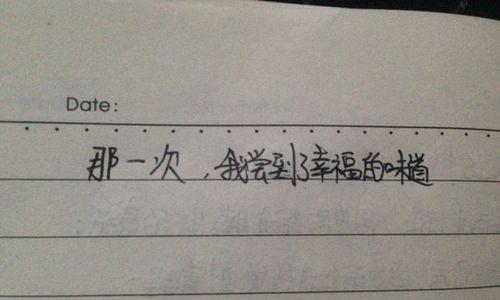 Date:
那一次，我尝到了幸福的味道